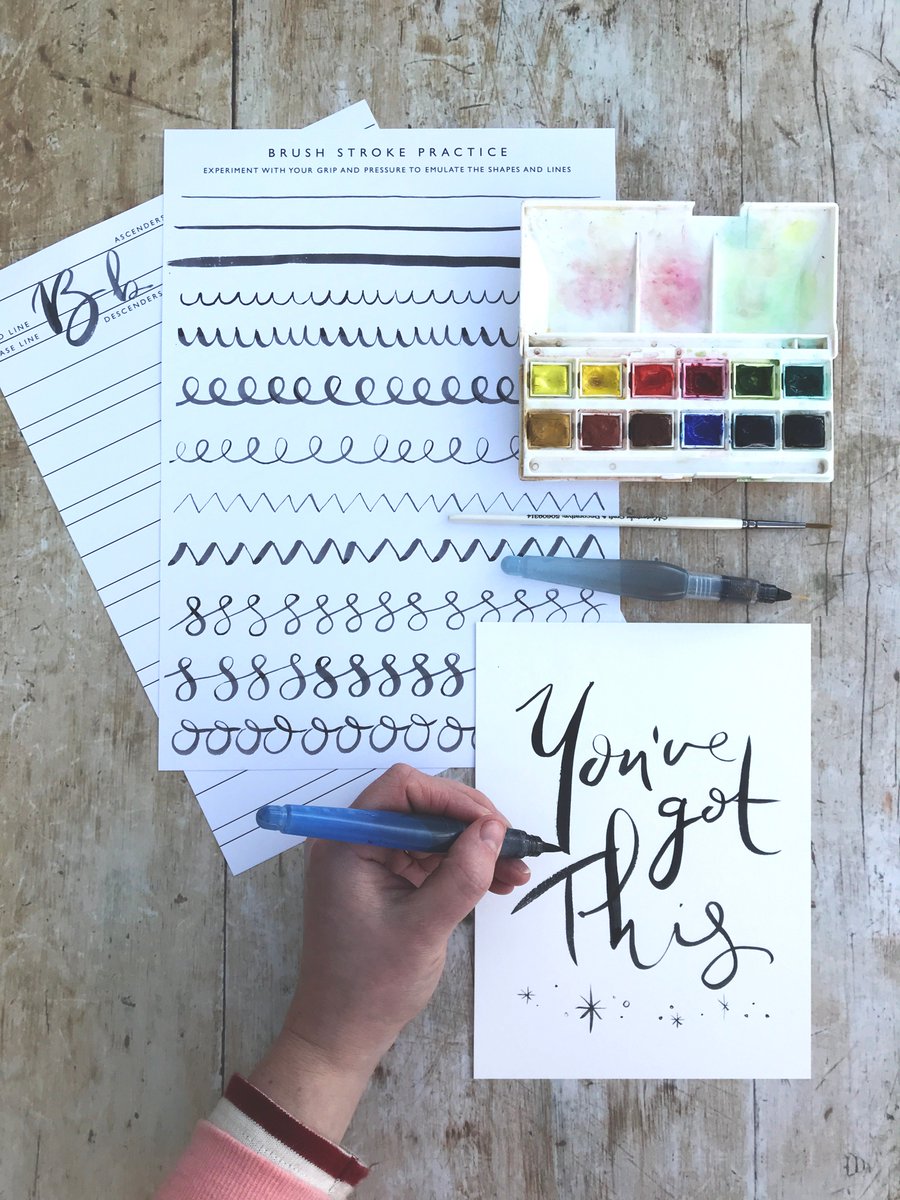 BRUSH STROKE PRACTICE
EXPERIMENT WITH YOUR GRIP AND PRESSURE TO EMULATE THE SHAPES AND LINES
ASCENDERS
Bb
LINE
BASE LINE
DESCENDERS
You've
got
This